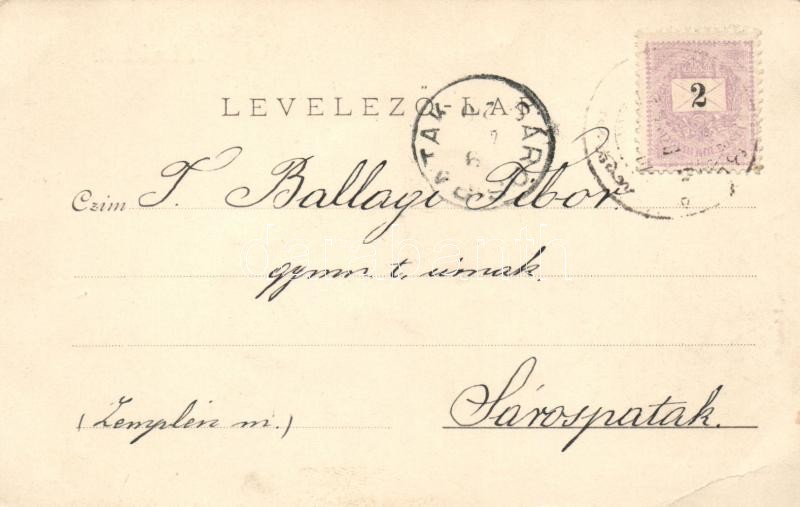 LEVELEZŐ-LAP
2
SÁROSPATAK
Czim T. Ballagi Tibor.
gymn. t. úrnak.
(Zemplén m.)
Sárospatak.
darabanth